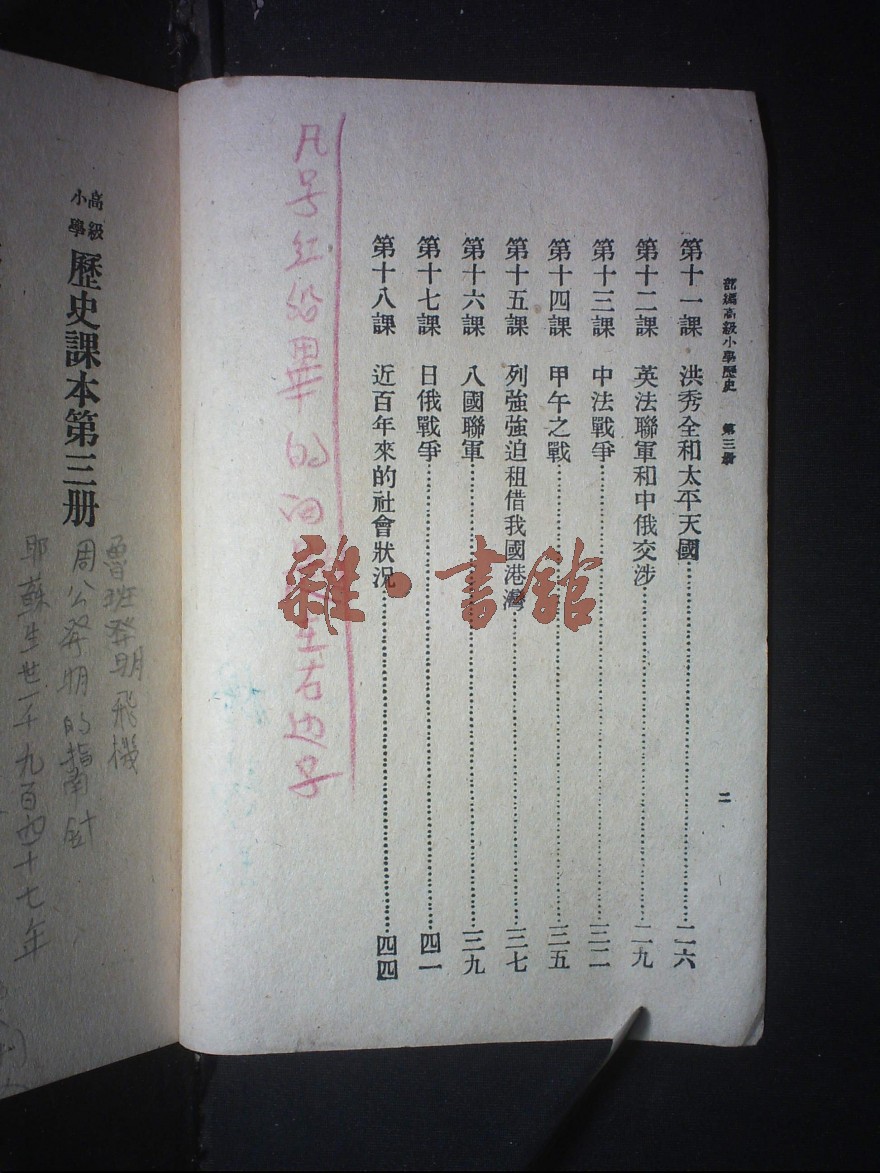 部編高級小學歷史 第三册
二
第十一課 洪秀全和太平天國……二六
第十二課 英法聯軍和中俄交涉……二九
第十三課 中法戰爭……三二
第十四課 甲午之戰……三五
第十五課 列強強迫租借我國港灣……三七
第十六課 八國聯軍……三九
第十七課 日俄戰爭……四一
第十八課 近百年來的社會狀況……四四
凡号红 的 右边子
雜·書館
高級小學 歷史課本第三册
魯班發明飛機
周公發明的指南針
耶蘇生世一千九百四十七年